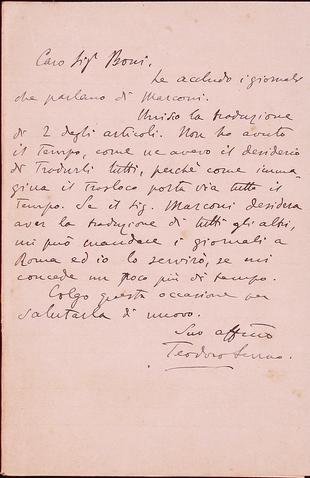 Caro Sigr Boni,
Le accludo i giornali
che parlano di Marconi.
Unisco la traduzione
di 2 degli articoli. Non ho avuto
il tempo, come ne avevo il desiderio
di tradurli tutti, perchè come imma-
gina il trasloco porta via tutto il
tempo. Se il Sig. Marconi desidera
aver la traduzione di tutti gli altri,
mi può mandare i giornali a
Roma ed io lo servirò, se mi
concede un poco più di tempo.
Colgo questa occasione per
salutarla di nuovo.
Suo affmo
Teodoro